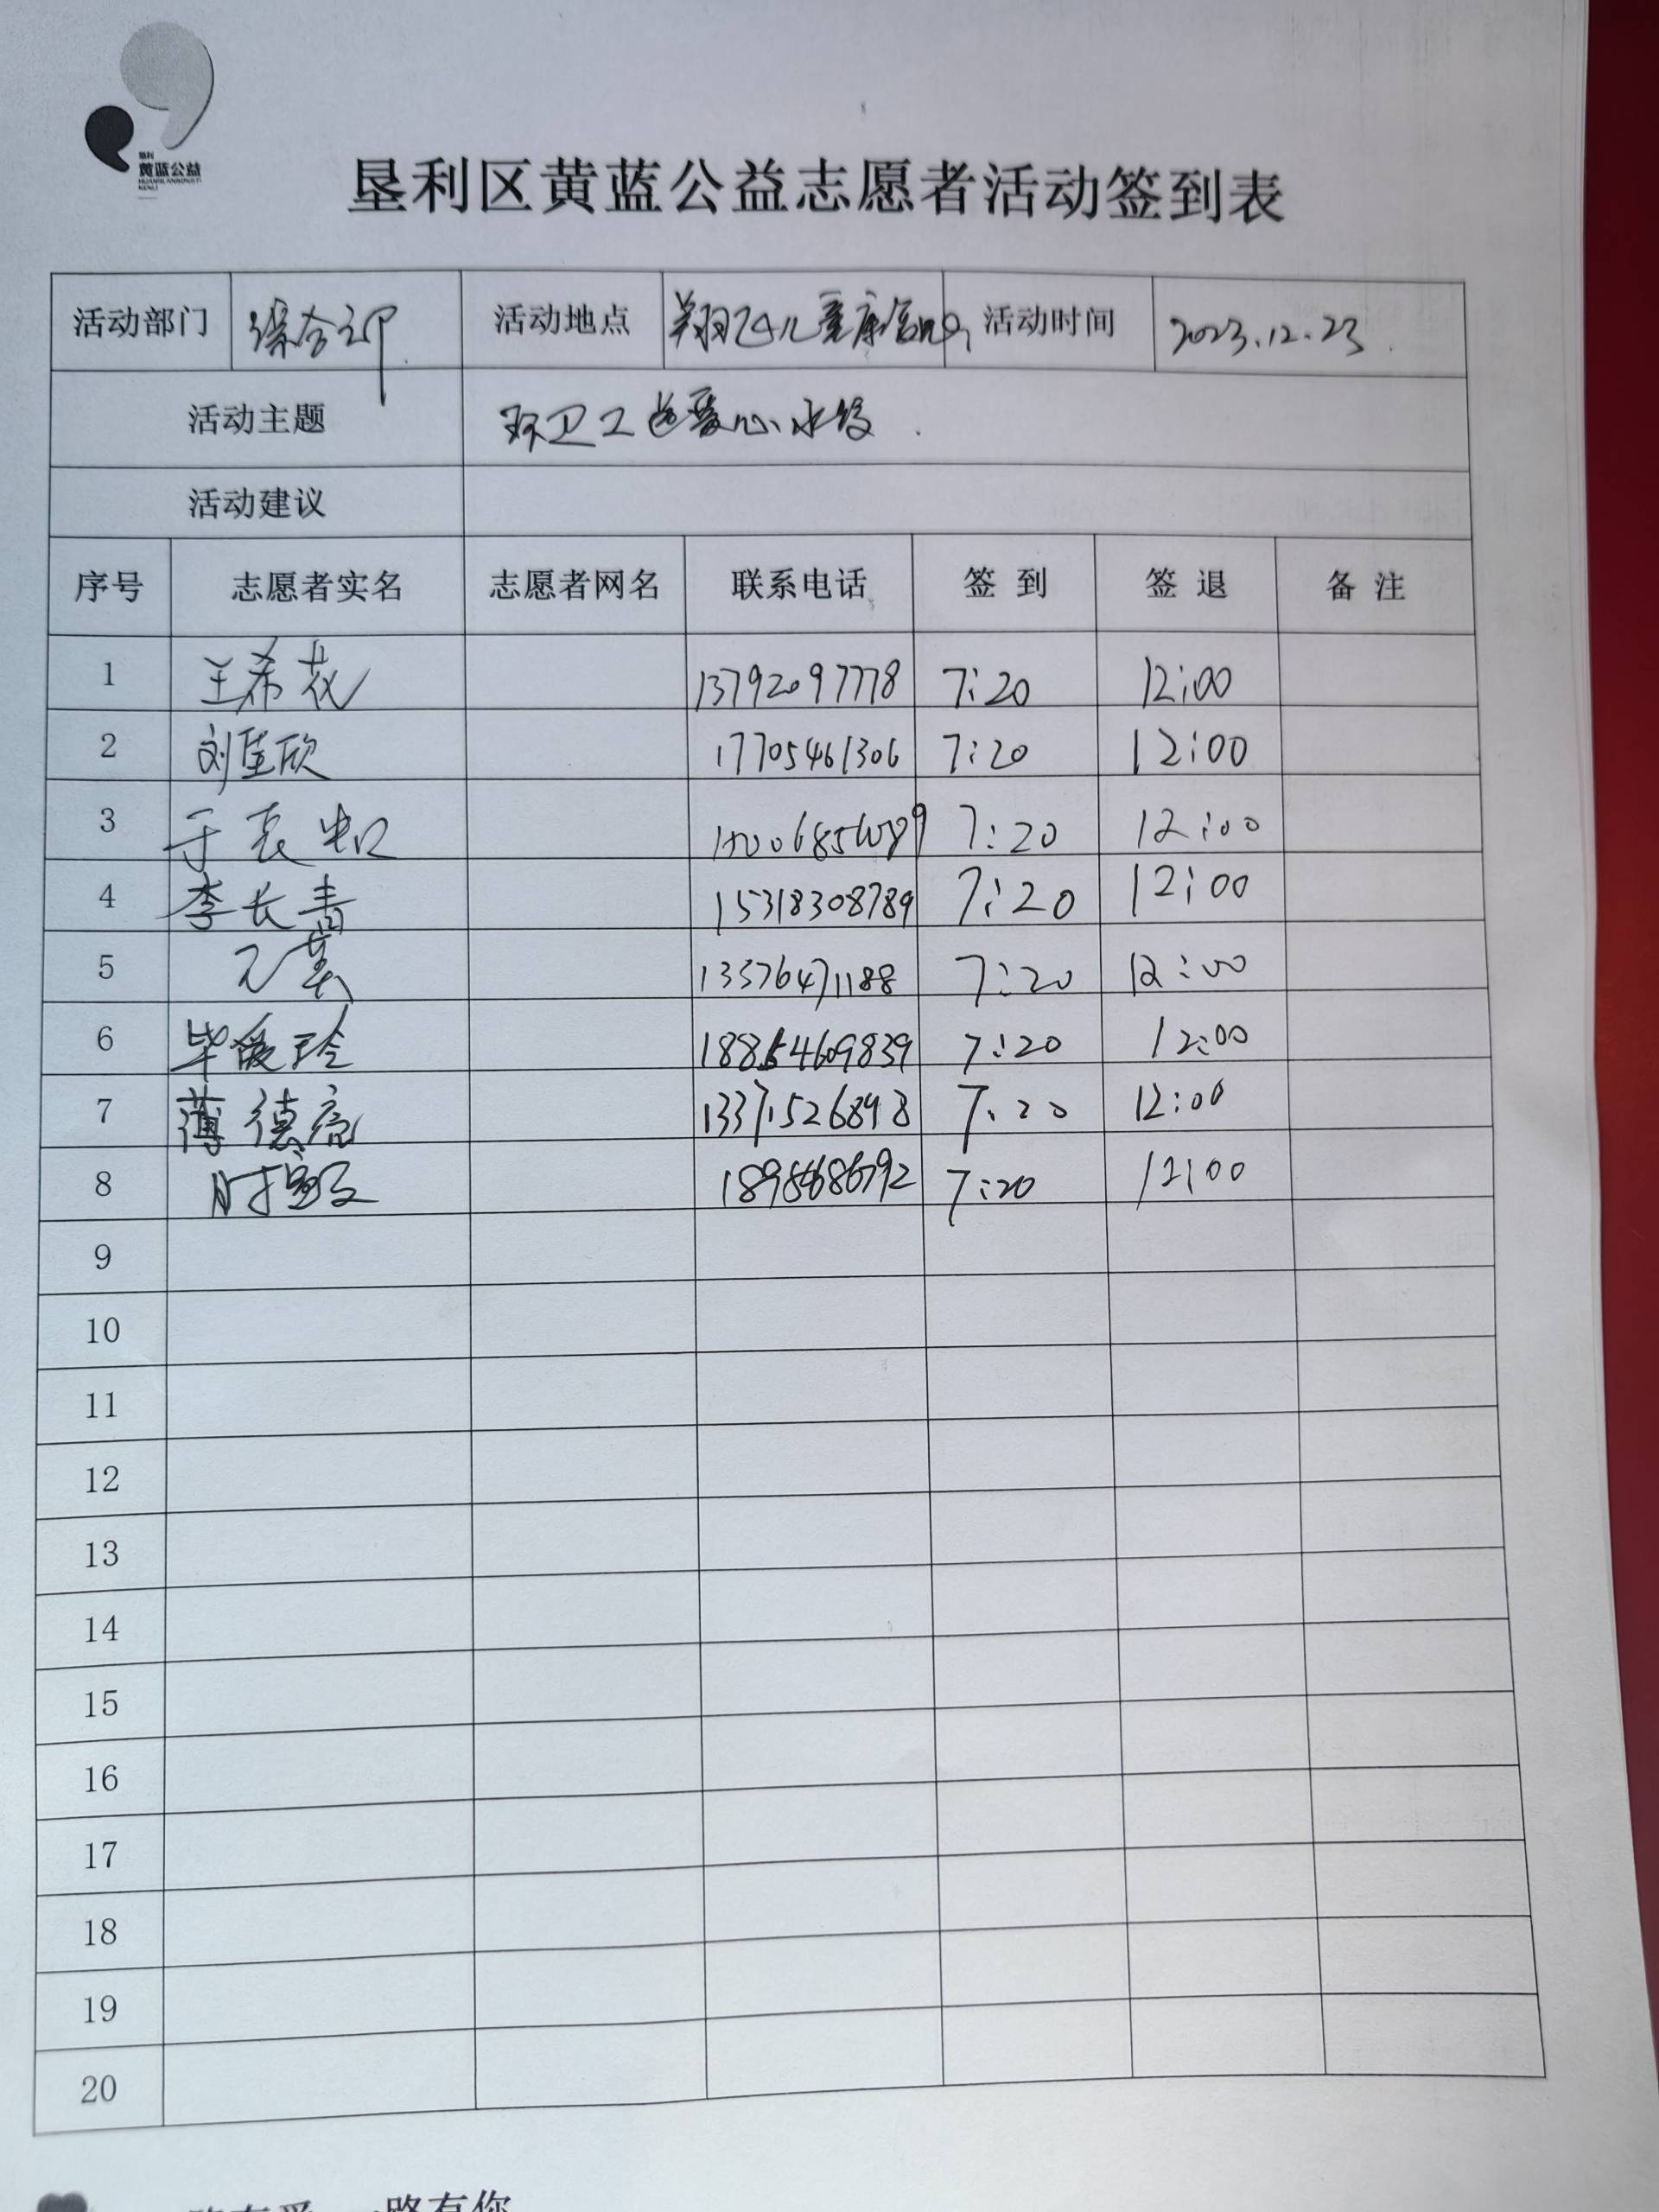 垦利
黄蓝公益
KENLI
垦利区黄蓝公益志愿者活动签到表
活动部门 综合部 活动地点 翔飞儿童康复 活动时间 2023.12.23.
活动主题 环卫工送爱心水饺.
活动建议
序号 志愿者实名 志愿者网名 联系电话 签到 签退 备注
1 王希花 13792097778 7:20 12:00
2 刘佳欣 17705461306 7:20 12:00
3 于 7:20 12:00
4 李长青 15318308789 7:20 12:00
5 13376471188 7:20 12:00
6 毕爱玲 18854609839 7:20 12:00
7 薄德亮 13371526898 7:20 12:00
8 7:20 12:00
9
10
11
12
13
14
15
16
17
18
19
20
一路有你